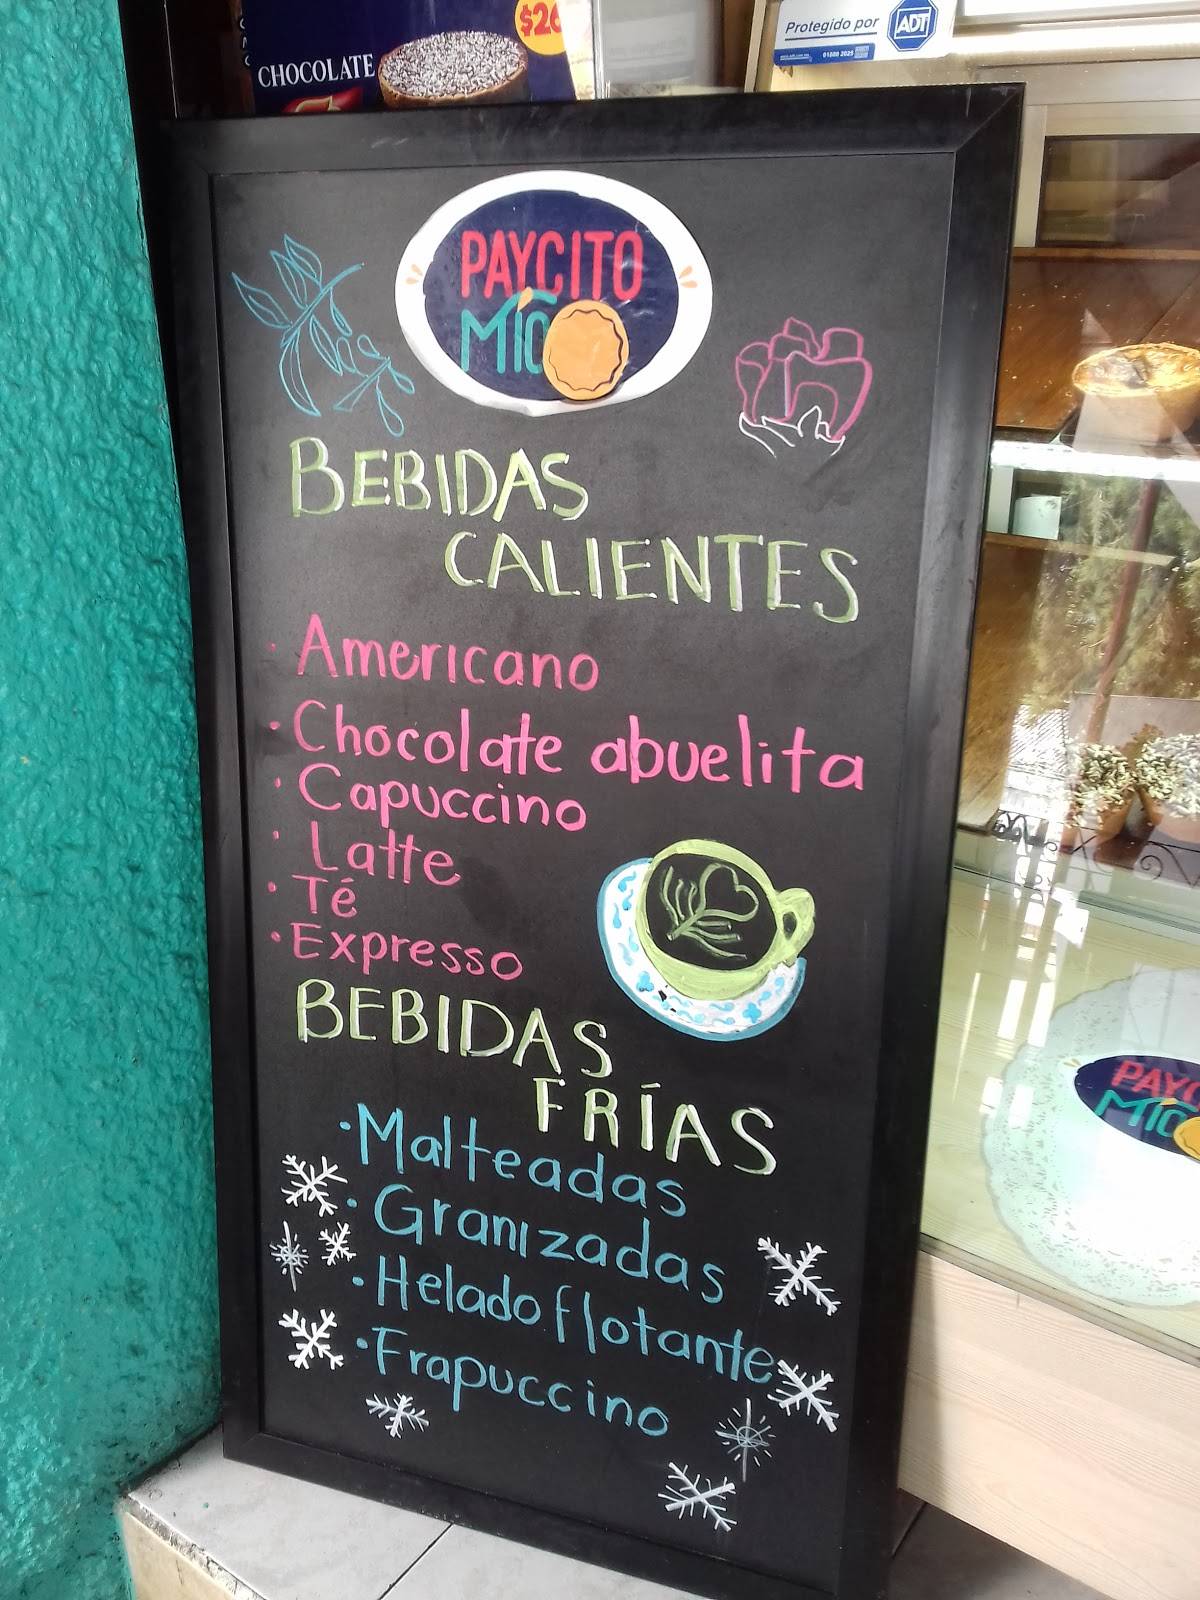 $26
CHOCOLATE
Protegido por
ADT
PAYCITO
MÍO
BEBIDAS
CALIENTES
· Americano
· Chocolate abuelita
· Capuccino
· Latte
· Té
· Expresso
BEBIDAS
FRÍAS
· Malteadas
· Granizadas
· Helado flotante
· Frapuccino
PAYC
MÍO